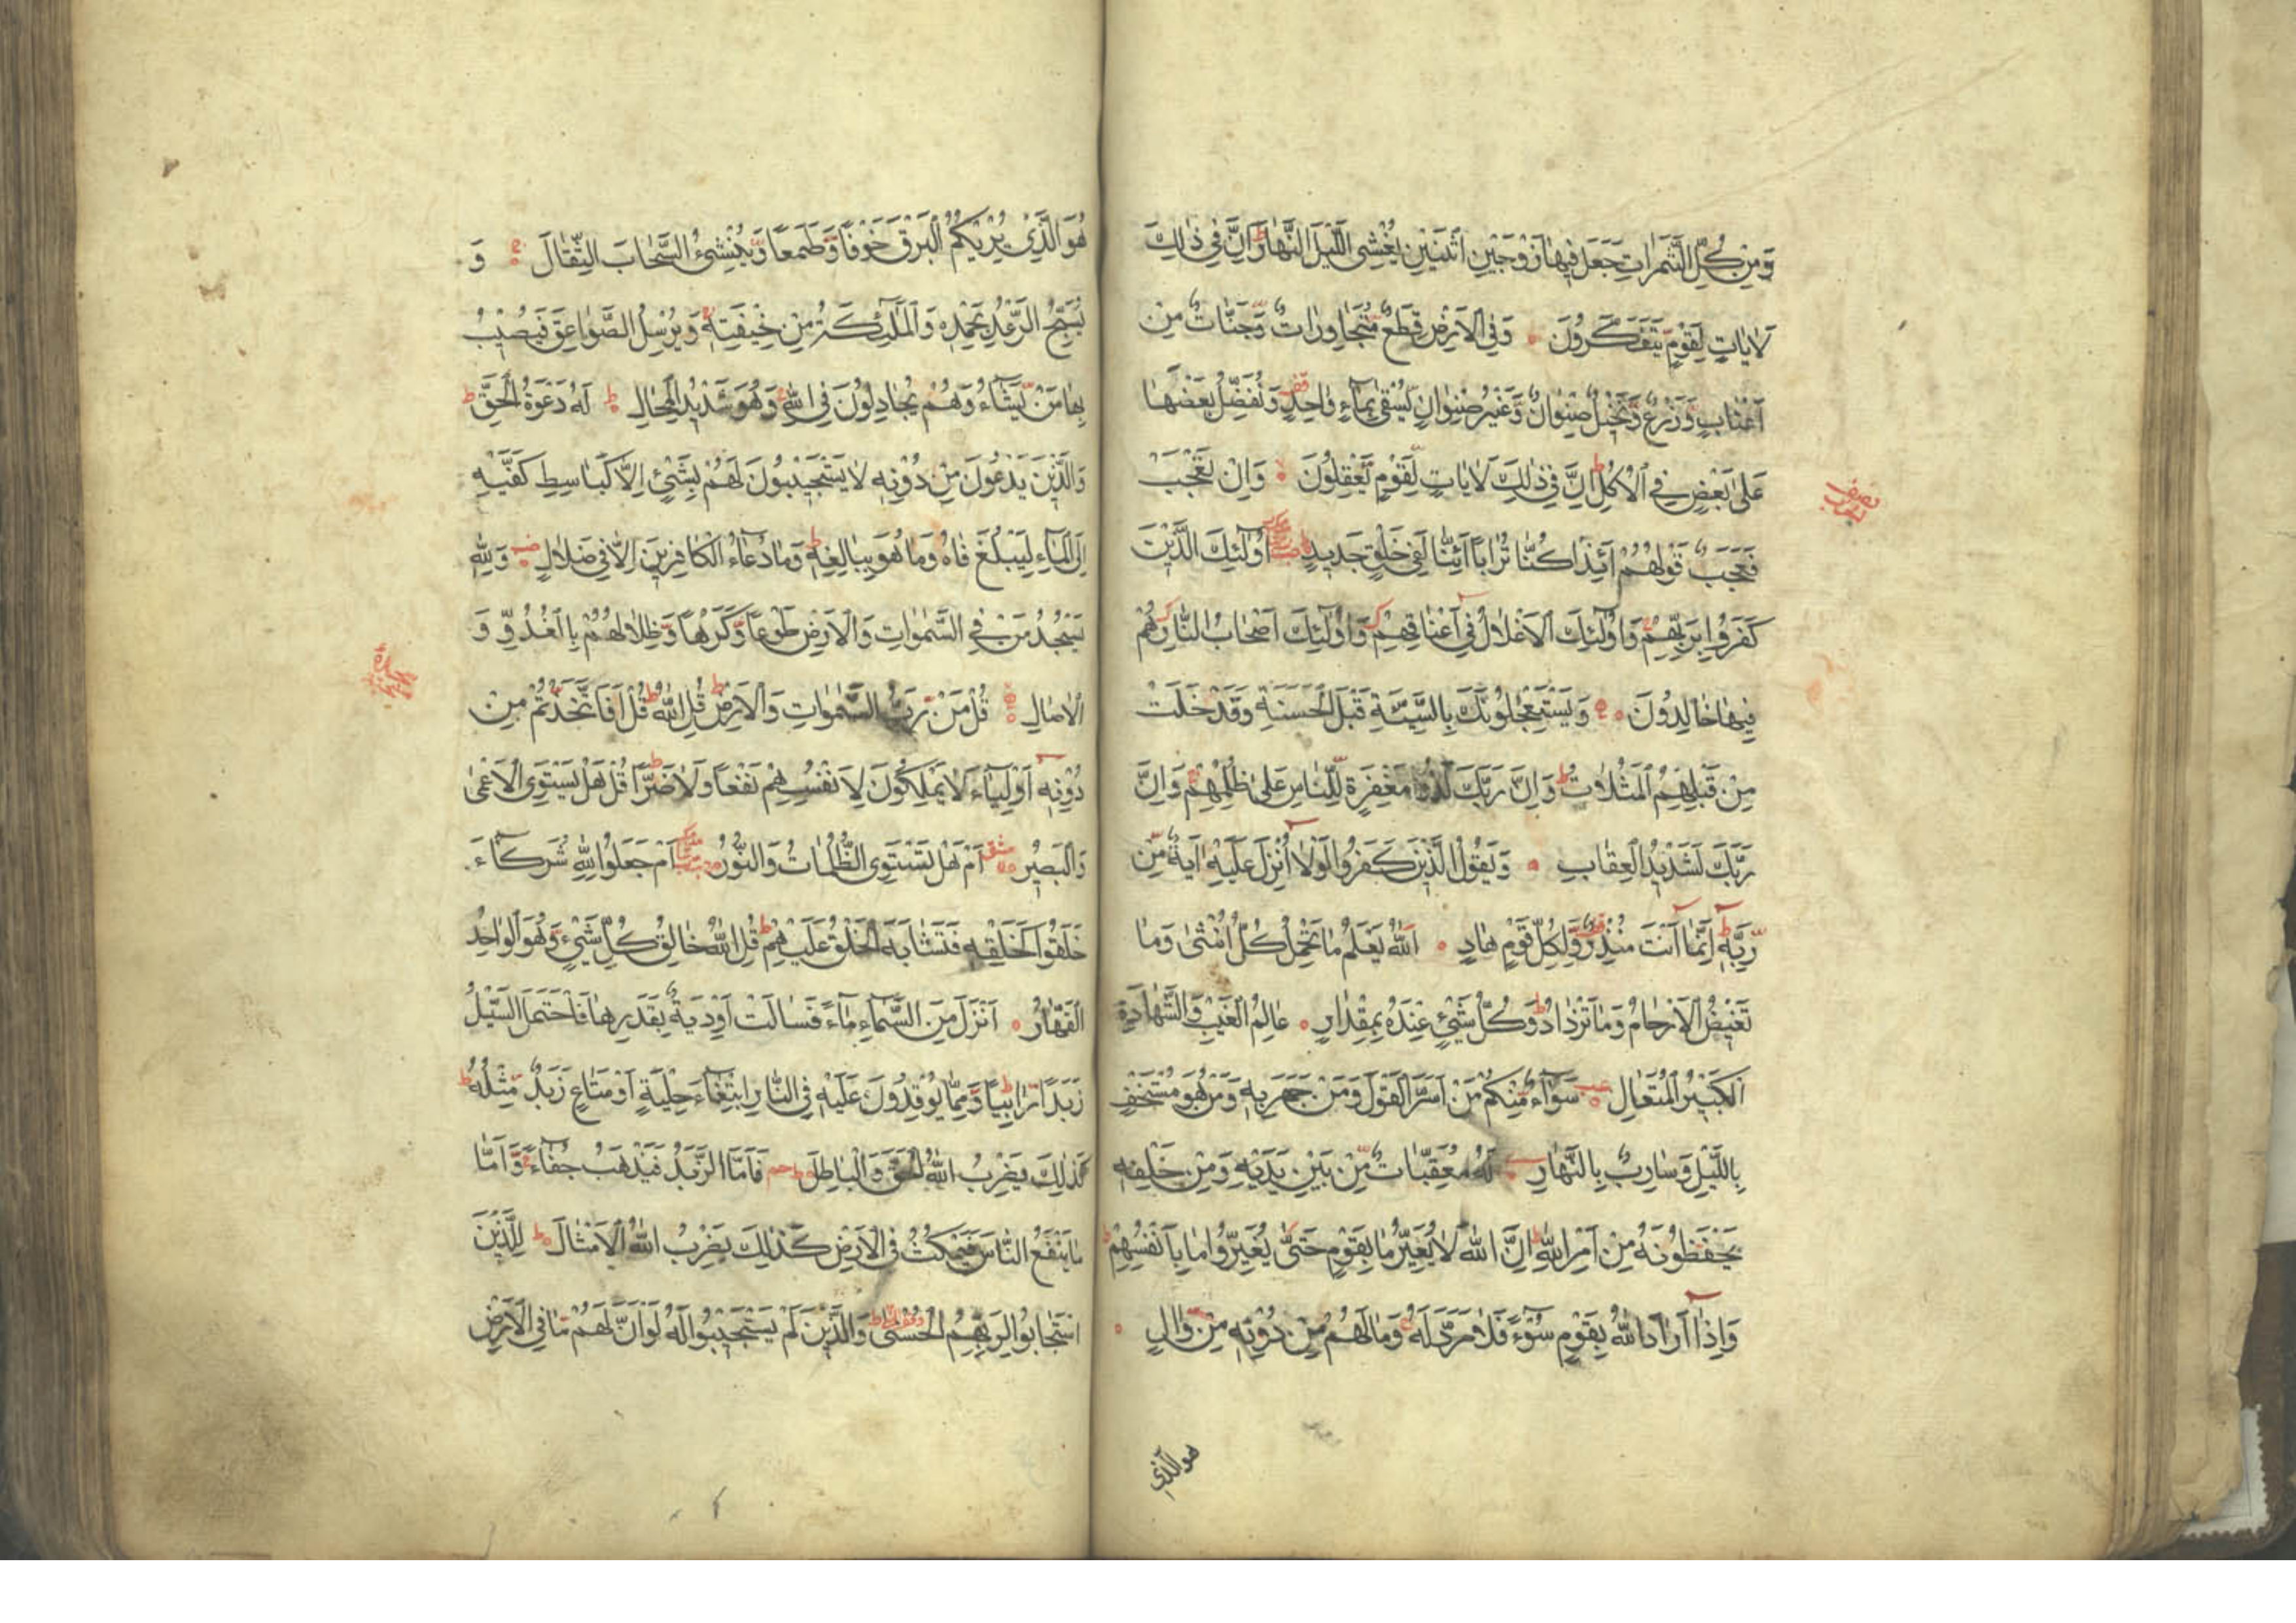 وَمِنْ كُلِّ الثَّمَرَاتِ جَعَلَ فِيهَا زَوْجَيْنِ اثْنَيْنِ يُغْشِي اللَّيْلَ النَّهَارَ اِنَّ فِي ذٰلِكَ
لَاٰيَاتٍ لِقَوْمٍ يَتَفَكَّرُونَ وَفِي الْاَرْضِ قِطَعٌ مُتَجَاوِرَاتٌ وَجَنَّاتٌ مِنْ
اَعْنَابٍ وَزَرْعٌ وَنَخِيلٌ صِنْوَانٌ وَغَيْرُ صِنْوَانٍ يُسْقٰى بِمَاءٍ وَاحِدٍ وَنُفَضِّلُ بَعْضَهَا
عَلٰى بَعْضٍ فِي الْاُكُلِ اِنَّ فِي ذٰلِكَ لَاٰيَاتٍ لِقَوْمٍ يَعْقِلُونَ وَاِنْ تَعْجَبْ
فَعَجَبٌ قَوْلُهُمْ اَئِذَا كُنَّا تُرَاباً اَئِنَّا لَفِي خَلْقٍ جَدِيدٍ اُولٰئِكَ الَّذِينَ
كَفَرُوا بِرَبِّهِمْ وَاُولٰئِكَ الْاَغْلَالُ فِي اَعْنَاقِهِمْ وَاُولٰئِكَ اَصْحَابُ النَّارِ هُمْ
فِيهَا خَالِدُونَ وَيَسْتَعْجِلُونَكَ بِالسَّيِّئَةِ قَبْلَ الْحَسَنَةِ وَقَدْ خَلَتْ
مِنْ قَبْلِهِمُ الْمَثُلَاتُ وَاِنَّ رَبَّكَ لَذُو مَغْفِرَةٍ لِلنَّاسِ عَلٰى ظُلْمِهِمْ وَاِنَّ
رَبَّكَ لَشَدِيدُ الْعِقَابِ وَيَقُولُ الَّذِينَ كَفَرُوا لَوْلَا اُنْزِلَ عَلَيْهِ اٰيَةٌ مِنْ
رَبِّهِ اِنَّمَا اَنْتَ مُنْذِرٌ وَلِكُلِّ قَوْمٍ هَادٍ اَللّٰهُ يَعْلَمُ مَا تَحْمِلُ كُلُّ اُنْثٰى وَمَا
تَغِيضُ الْاَرْحَامُ وَمَا تَزْدَادُ وَكُلُّ شَيْءٍ عِنْدَهُ بِمِقْدَارٍ عَالِمُ الْغَيْبِ وَالشَّهَادَةِ
الْكَبِيرُ الْمُتَعَالِ سَوَاءٌ مِنْكُمْ مَنْ اَسَرَّ الْقَوْلَ وَمَنْ جَهَرَ بِهِ وَمَنْ هُوَ مُسْتَخْفٍ
بِاللَّيْلِ وَسَارِبٌ بِالنَّهَارِ لَهُ مُعَقِّبَاتٌ مِنْ بَيْنِ يَدَيْهِ وَمِنْ خَلْفِهِ
يَحْفَظُونَهُ مِنْ اَمْرِ اللّٰهِ اِنَّ اللّٰهَ لَا يُغَيِّرُ مَا بِقَوْمٍ حَتّٰى يُغَيِّرُوا مَا بِاَنْفُسِهِمْ
وَاِذَا اَرَادَ اللّٰهُ بِقَوْمٍ سُوءً فَلَا مَرَدَّ لَهُ وَمَا لَهُمْ مِنْ دُونِهِ مِنْ وَالٍ
هو الذي
هُوَ الَّذِي يُرِيكُمُ الْبَرْقَ خَوْفاً وَطَمَعاً وَيُنْشِئُ السَّحَابَ الثِّقَالَ وَ
يُسَبِّحُ الرَّعْدُ بِحَمْدِهِ وَالْمَلٰئِكَةُ مِنْ خِيفَتِهِ وَيُرْسِلُ الصَّوَاعِقَ فَيُصِيبُ
بِهَا مَنْ يَشَاءُ وَهُمْ يُجَادِلُونَ فِي اللّٰهِ وَهُوَ شَدِيدُ الْمِحَالِ لَهُ دَعْوَةُ الْحَقِّ
وَالَّذِينَ يَدْعُونَ مِنْ دُونِهِ لَا يَسْتَجِيبُونَ لَهُمْ بِشَيْءٍ اِلَّا كَبَاسِطِ كَفَّيْهِ
اِلَى الْمَاءِ لِيَبْلُغَ فَاهُ وَمَا هُوَ بِبَالِغِهِ وَمَا دُعَاءُ الْكَافِرِينَ اِلَّا فِي ضَلَالٍ وَلِلّٰهِ
يَسْجُدُ مَنْ فِي السَّمٰوَاتِ وَالْاَرْضِ طَوْعاً وَكَرْهاً وَظِلَالُهُمْ بِالْغُدُوِّ وَ
الْاٰصَالِ قُلْ مَنْ رَبُّ السَّمٰوَاتِ وَالْاَرْضِ قُلِ اللّٰهُ قُلْ اَفَاتَّخَذْتُمْ مِنْ
دُونِهِ اَوْلِيَاءَ لَا يَمْلِكُونَ لِاَنْفُسِهِمْ نَفْعاً وَلَا ضَرّاً قُلْ هَلْ يَسْتَوِي الْاَعْمٰى
وَالْبَصِيرُ اَمْ هَلْ تَسْتَوِي الظُّلُمَاتُ وَالنُّورُ اَمْ جَعَلُوا لِلّٰهِ شُرَكَاءَ
خَلَقُوا كَخَلْقِهِ فَتَشَابَهَ الْخَلْقُ عَلَيْهِمْ قُلِ اللّٰهُ خَالِقُ كُلِّ شَيْءٍ وَهُوَ الْوَاحِدُ
الْقَهَّارُ اَنْزَلَ مِنَ السَّمَاءِ مَاءً فَسَالَتْ اَوْدِيَةٌ بِقَدَرِهَا فَاحْتَمَلَ السَّيْلُ
زَبَداً رَابِياً وَمِمَّا يُوقِدُونَ عَلَيْهِ فِي النَّارِ ابْتِغَاءَ حِلْيَةٍ اَوْ مَتَاعٍ زَبَدٌ مِثْلُهُ
كَذٰلِكَ يَضْرِبُ اللّٰهُ الْحَقَّ وَالْبَاطِلَ فَاَمَّا الزَّبَدُ فَيَذْهَبُ جُفَاءً وَاَمَّا
مَا يَنْفَعُ النَّاسَ فَيَمْكُثُ فِي الْاَرْضِ كَذٰلِكَ يَضْرِبُ اللّٰهُ الْاَمْثَالَ لِلَّذِينَ
اسْتَجَابُوا لِرَبِّهِمُ الْحُسْنٰى وَالَّذِينَ لَمْ يَسْتَجِيبُوا لَهُ لَوْ اَنَّ لَهُمْ مَا فِي الْاَرْضِ